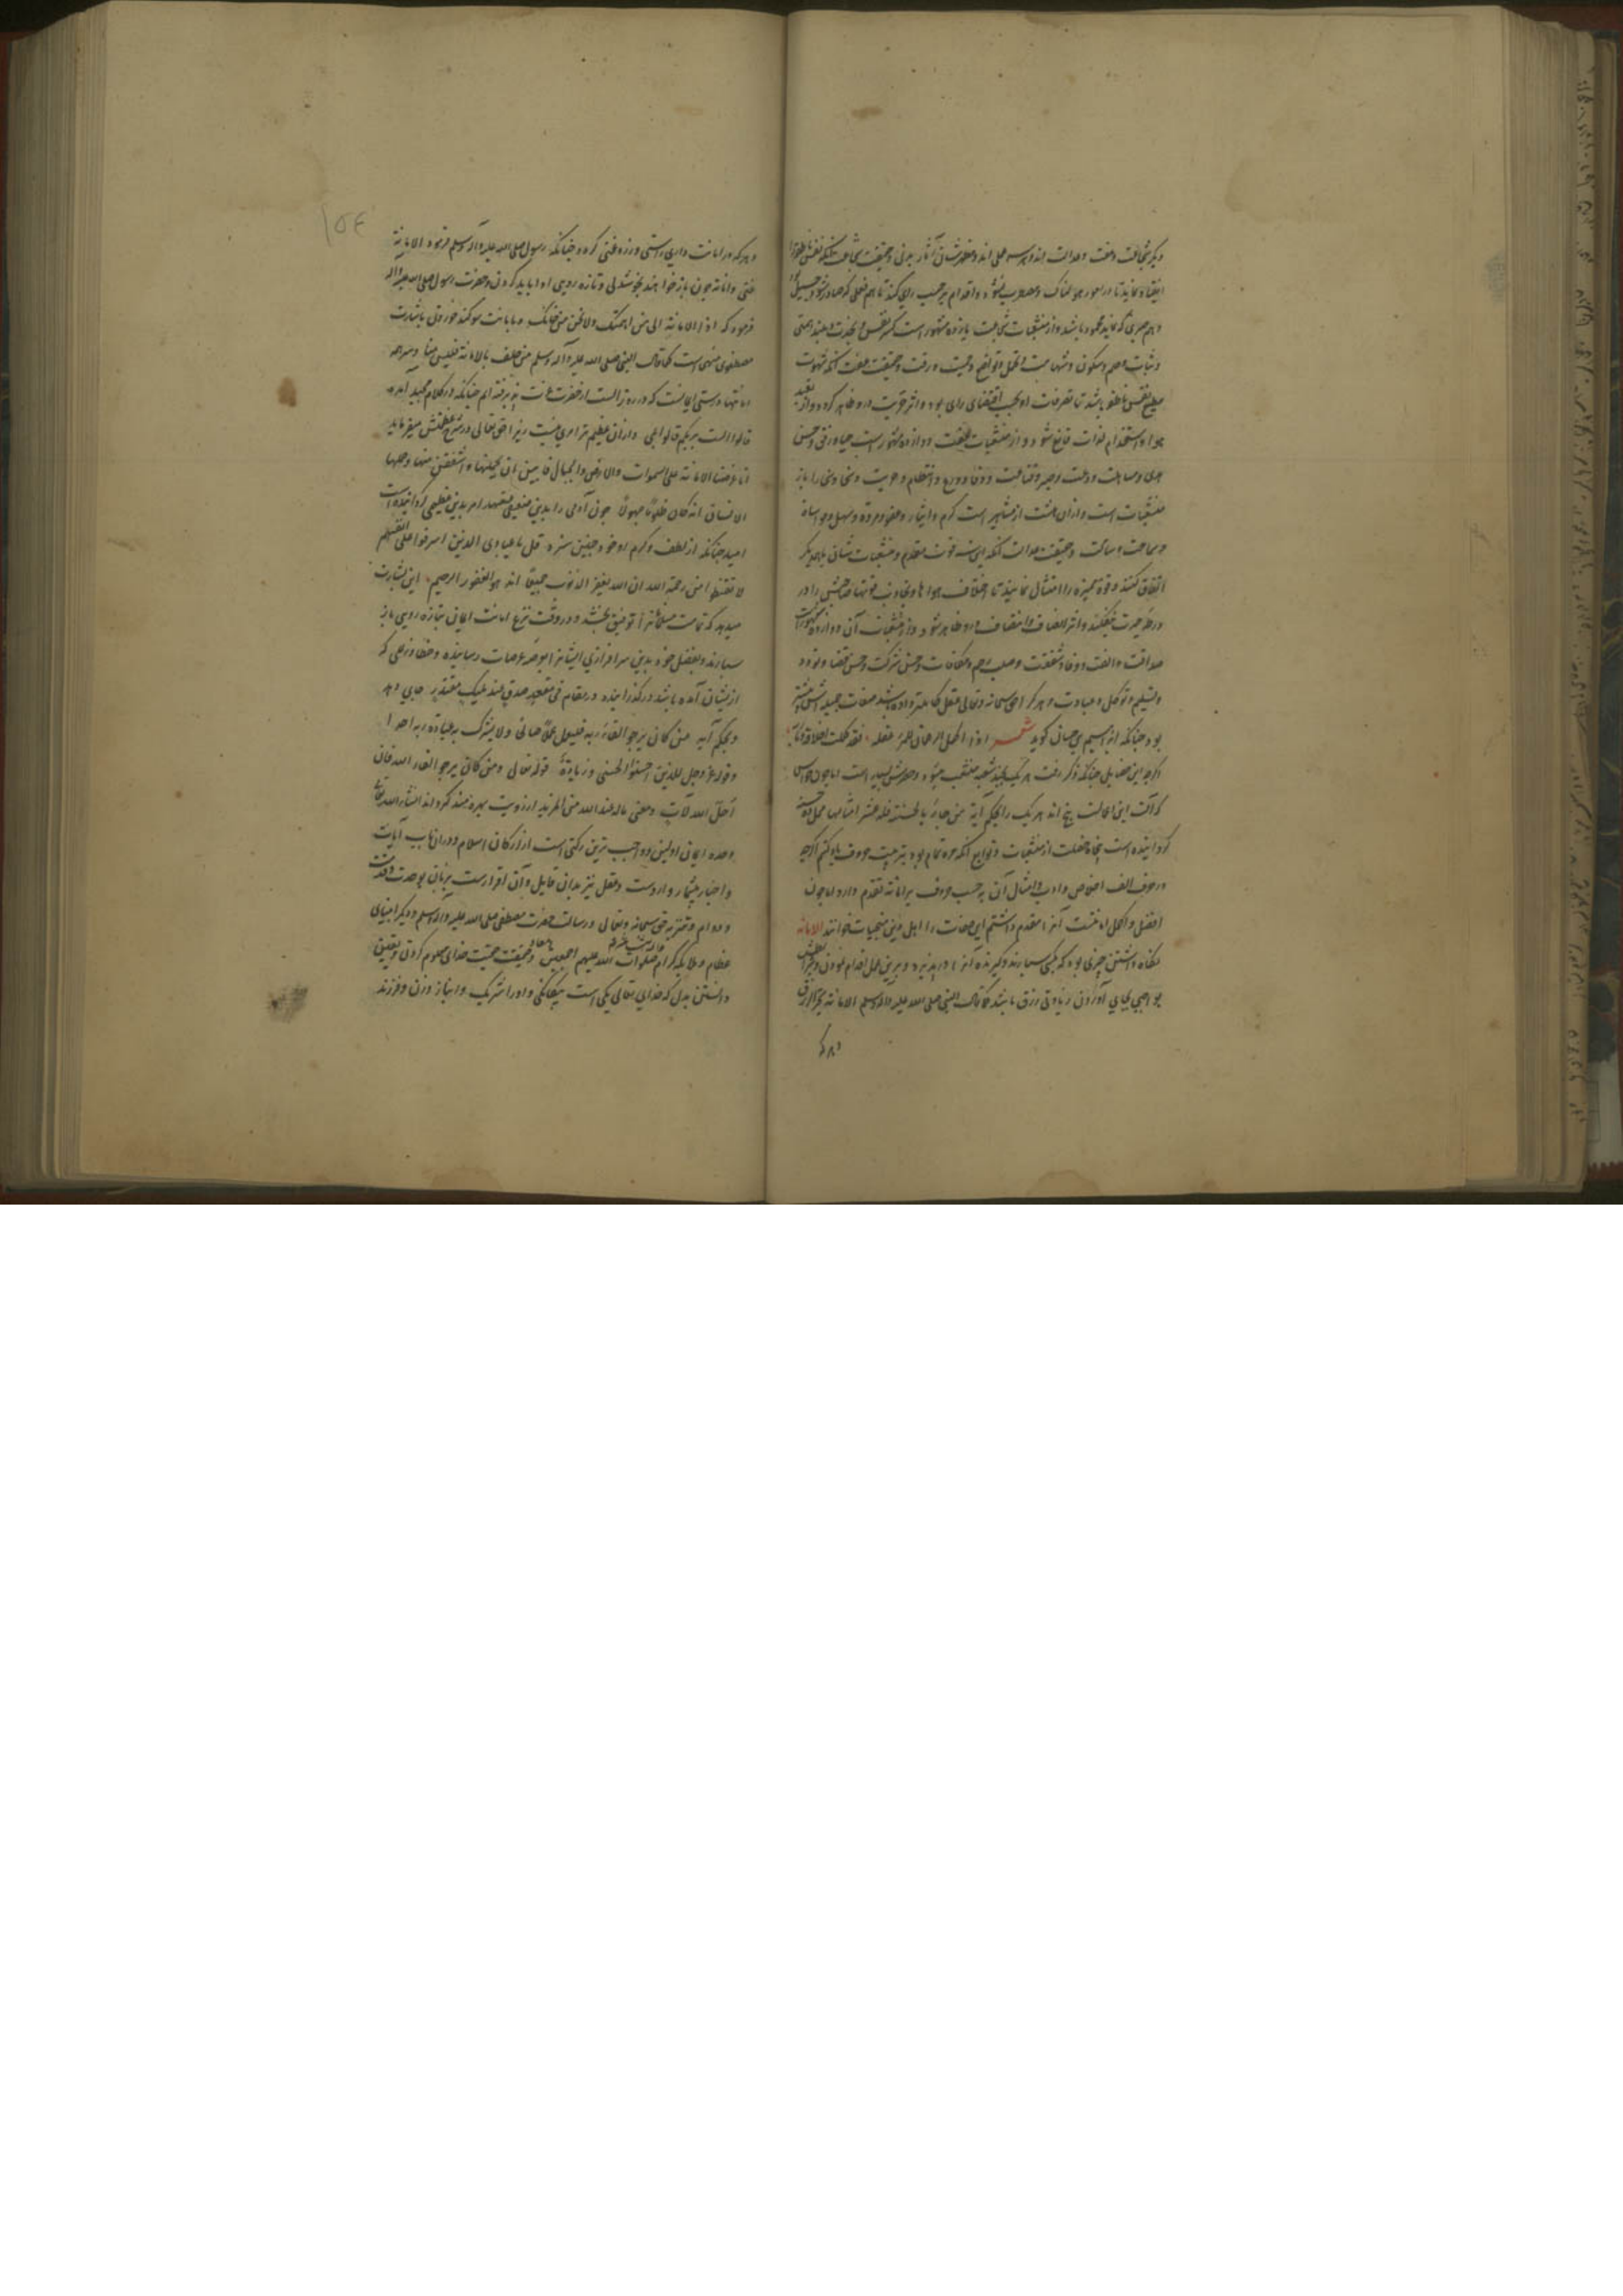 دیگر شجاعت و عفت و عدالت اند و هر سه عملی اند و مظهرشان آثار بدنی و حقیقت شجاعت آنکه نفس
انقیاد نماید تا در امور هولناک مضطرب نشود و اقدام بر حسب رای کند تا هم فعلی که صادر شود جمیل
و هم صبری که نماید محمود باشد و از منشعبات شجاعت یازده مشهور است کبر نفس و نجدت و بلند همتی
و ثبات و حلم و سکون و شهامت و تحمل و تواضع و حمیت و رقت و حقیقت عفت آنکه شهوت
مطیع نفس ناطقه باشد تا تصرفات او بحسب اقتضای رای بود و اثر حریت درو ظاهر گردد و از تعبد
هوا و استخدام لذات فارغ شود و از منشعبات عفت دوازده مشهور است حیا و رفق و حسن
هدی و مسالمت و دعت و صبر و قناعت و وقار و ورع و انتظام و حریت و سخا و سخا را باز
منشعبات است و از آن هشت از مشاهیر است کرم و ایثار و عفو و مروة و نیل و مواساة
و سماحت و مسامحت و حقیقت عدالت آنکه این سه قوت متقدم و منشعبات شان با همدیگر
اتفاق کنند و قوة ممیزه را امتثال نمایند تا اختلاف هواها و تجاذب قوتها صاحبش را در
ورطه حیرت نیفکند و اثر انصاف و انتصاف درو ظاهر شود و از منشعبات آن دوازده مشهور است
صداقت و الفت و وفا و شفقت و صلت رحم و مکافات و حسن شرکت و حسن قضا و تودد
و تسلیم و توکل و عبادت و هر کرا حق سبحانه و تعالی عقل کامل تر داده باشد صفات جمیله اش بیشتر
بود چنانکه ابراهیم بن حسان گوید شعر اذا اکمل الرحمان للمرء عقله فقد کملت اخلاقه و مآربه
اگرچه این فضایل چنانکه ذکر رفت هر یک بچند شعبه منشعب میشود و حصرش بسیار است اما چون حواس
که آلت این امالت پنج اند هر یک را بحکم آیة من جاء بالحسنة فله عشر امثالها محل ده حسنه
گردانیده است پنجاه خصلت از منشعبات و توابع آنکه عمده تمام بود بترتیب حروف یاد کنیم اگرچه
در حرف الف اخلاص و ادب و امثال آن بر حسب حروف بر امانة تقدم دارد اما چون
افضل و اکمل امانتست آنرا مقدم داشتم این صفات را اهل دین منجیات خوانند الامانة
نگاه داشتن چیزی بود که بکسی سپارند و گیرنده آنرا در پذیرد و برین عمل اقدام نمودن و شرائطش
بواجبی بجای آوردن زیادتی رزق باشد کما قال النبی صلی الله علیه و آله و سلم الامانة تجر الرزق
و هر که
و هر که در امانت داری راستی ورزد غنی گردد چنانکه رسول صلی الله علیه و آله و سلم فرمود الامانة
غنی و امانة چون باز خواهند بخوشدلی و تازه رویی ادا باید کردن و حضرت رسول صلی الله علیه و آله
فرمود که اد الامانة الی من ائتمنک و لا تخن من خانک و بامانت سوگند خوردن باشارت
مصطفوی منهی است کما قال النبی صلی الله علیه و آله و سلم من حلف بالامانة فلیس منا و سر همه
امانتها درستی ایمانست که در روز الست از حضرت عزت پذیرفته ایم چنانکه در کلام مجید آمده
قال الست بربکم قالوا بلی و از آن عظیم تر امری نیست زیرا حق تعالی در شرح عظمتش میفرماید
انا عرضنا الامانة علی السموات والارض والجبال فابین ان یحملنها و اشفقن منها و حملها
الانسان انه کان ظلوما جهولا چون آدمی را بدین ضعیفی متعهد امر بدین عظیمی گردانیده است
امید چنانکه از لطف و کرم او خود چنین سزد قل یا عبادی الذین اسرفوا علی انفسهم
لا تقنطوا من رحمة الله ان الله یغفر الذنوب جمیعا انه هو الغفور الرحیم این بشارت
میدهد که تمامت مسلمانانرا توفیق بخشد و در وقت نزع امانت ایمان بتازه رویی باز
سپارند و بفضل خود بدین سرافرازی ایشانرا بعرصه عرصات رسانیده و خطا و زللی که
ازیشان آمده باشد در گذرانیده در مقام فی مقعد صدق عند ملیک مقتدر جای دهد
و بحکم آیه من کان یرجو لقاء ربه فلیعمل عملا صالحا ولا یشرک بعبادة ربه احدا
و قوله عز و جل للذین احسنوا الحسنی و زیادة قوله تعالی و من کان یرجو لقاء الله فان
اجل الله لآت و معنی ما له عند الله من المزید از رویت بهره مند گرداند انشاء الله تعالی
وحده ایمان اولین و واجب ترین رکنی است از ارکان اسلام و در آن باب آیات
و اخبار بیشمار واردست و عقل نیز بدان قایل و آن اقرارست بزبان بوحدت و قدرت
و دوام و تنزیه حق سبحانه و تعالی و رسالت حضرت مصطفی صلی الله علیه و آله و سلم و دیگر انبیای
عظام و ملایکه کرام صلوات الله علیهم اجمعین و حقیقت حقیت خدای معلوم کردن و بیقین
دانستن بدل که خدای تعالی یکی است بیگانگی و او را شریک و انباز و زن و فرزند
١٥٤